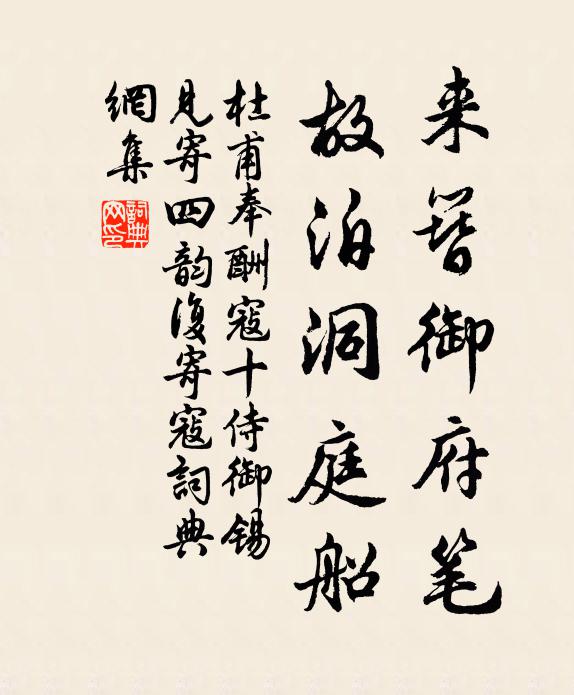 来簪御府笔
故泊洞庭船
杜甫奉酬寇十侍御锡
见寄四韵复寄寇詞典
網集
詞典
网印